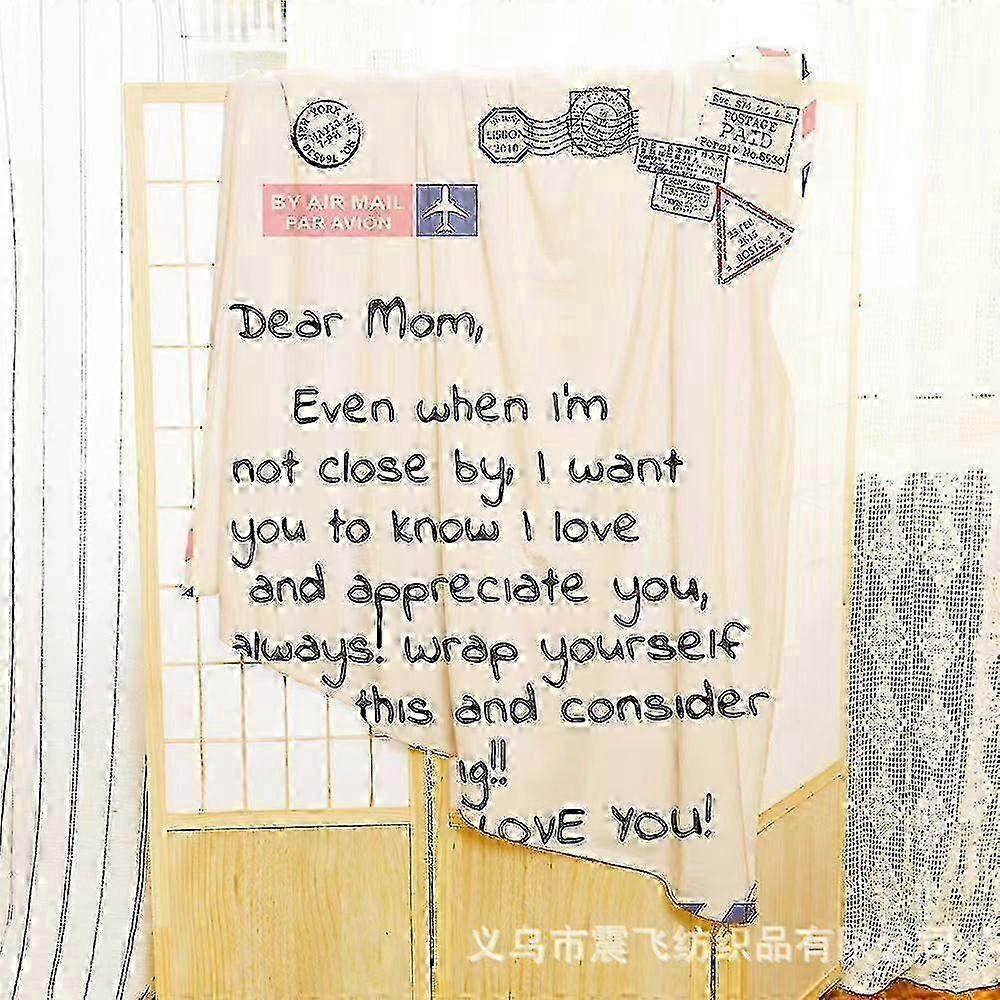 NEW YORK N.Y.
LISBON
2010
POSTAGE
PAID
Permit No 6930
BY AIR MAIL
PAR AVION
BOSTON
Dear Mom,
Even when I'm
not close by, I want
you to know I love
and appreciate you,
always! wrap yourself
this and consider
ig!!
LOVE YOU!
义乌市震飞纺织品有